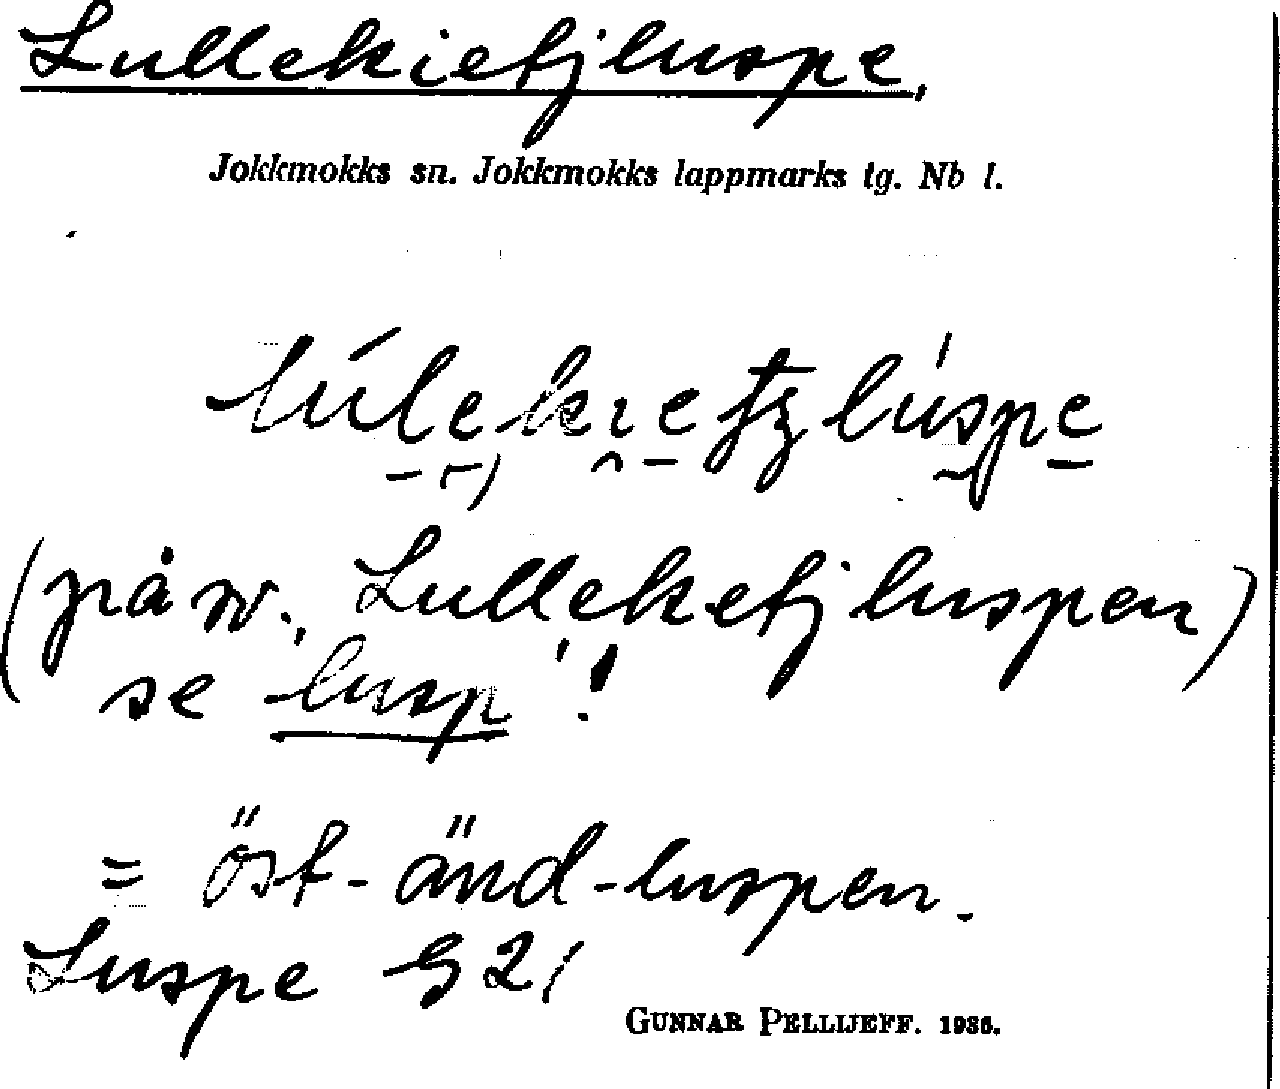 Lullekietjluspe.
Jokkmokks sn. Jokkmokks lappmarks tg. Nb l.
(på sv., Lulleketjluspen)
se lusp !
= öst-änd-luspen.
Luspe G 21
GUNNAR PELLIJEFF. 1936.